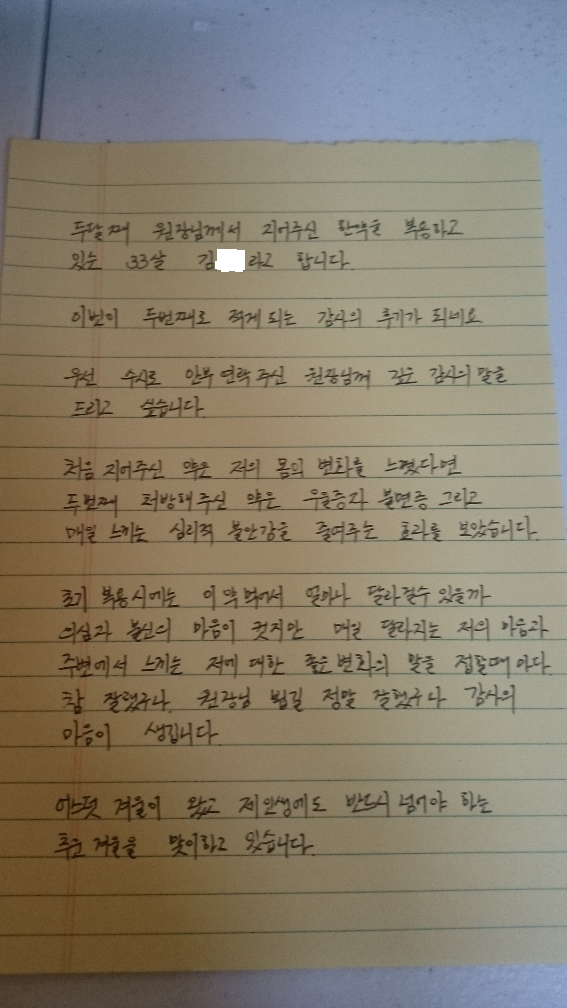 두달째 원장님께서 지어주신 한약을 복용하고
있는 33살 김 라고 합니다.
이번이 두번째로 적게 되는 감사의 후기가 되네요
우선 수시로 안부 연락 주신 원장님께 깊은 감사의 말을
드리고 싶습니다.
처음 지어주신 약은 저의 몸의 변화를 느꼈다면
두번째 처방해 주신 약은 우울증과 불면증 그리고
매일 느끼는 심리적 불안감을 줄여주는 효과를 보았습니다.
초기 복용시에는 이 약 먹어서 얼마나 달라질수 있을까
의심과 불신의 마음이 컷지만 매일 달라지는 저의 마음과
주변에서 느끼는 저에 대한 좋은 변화의 말을 접할때 마다.
참 잘했구나. 원장님 뵙길 정말 잘했구나 감사의
마음이 생깁니다.
어느덧 겨울이 왔고 제 인생에도 반드시 넘어야 하는
추운 겨울을 맞이하고 있습니다.